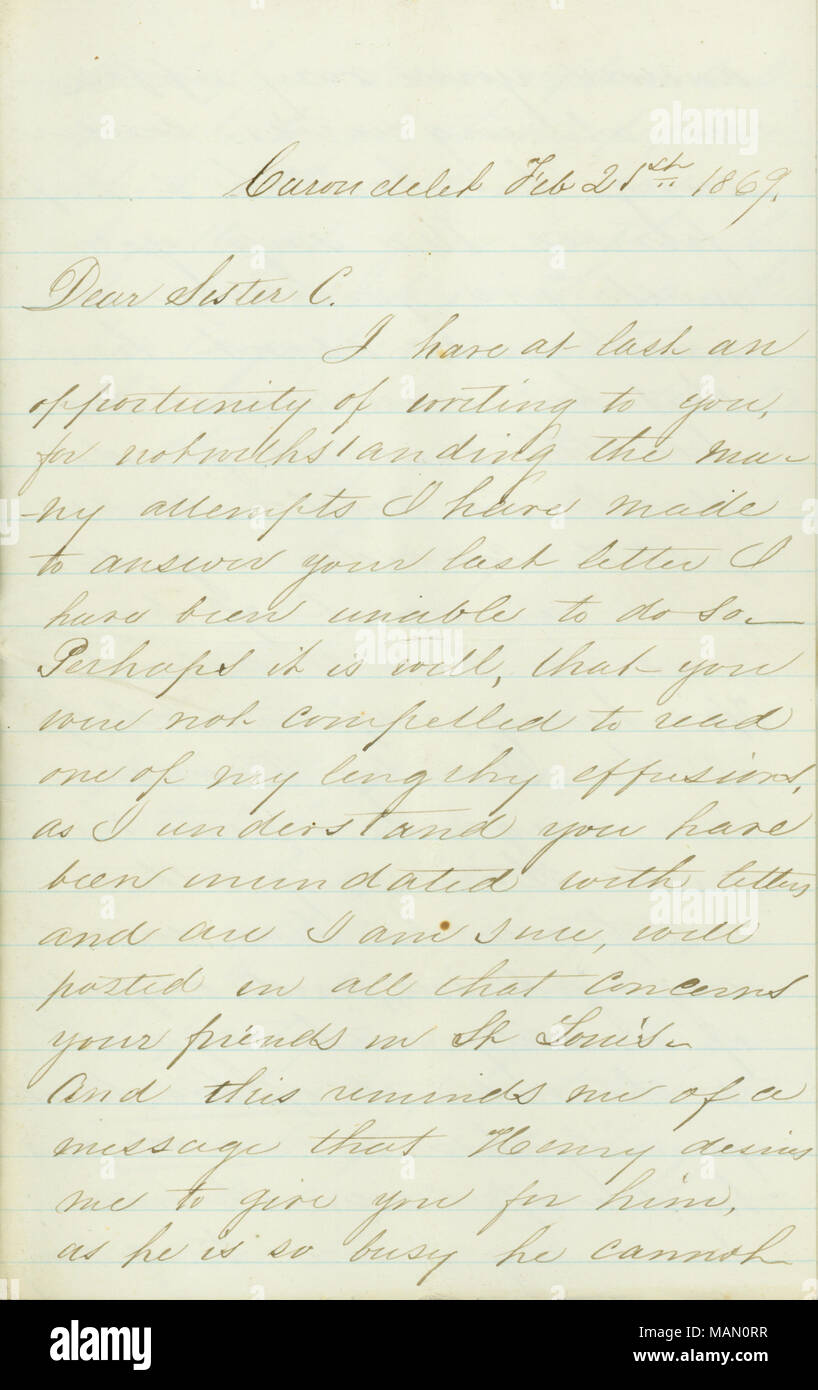 Carondelet Feb 21st 1869.
Dear Sister C.
I have at last an
opportunity of writing to you,
for notwithstanding the ma-
-ny attempts I have made
to answer your last letter I
have been unable to do so—
Perhaps it is well, that you
were not compelled to read
one of my lengthy effusions,
as I understand you have
been inundated with letters
and are I am sure, well
posted in all that concerns
your friends in St Louis—
And this reminds me of a
message that Henry desires
me to give you for him,
as he is so busy he cannot
alamy
alamy
alamy
a
a
a
a
a
a
alamy
Image ID: MAN0RR
www.alamy.com